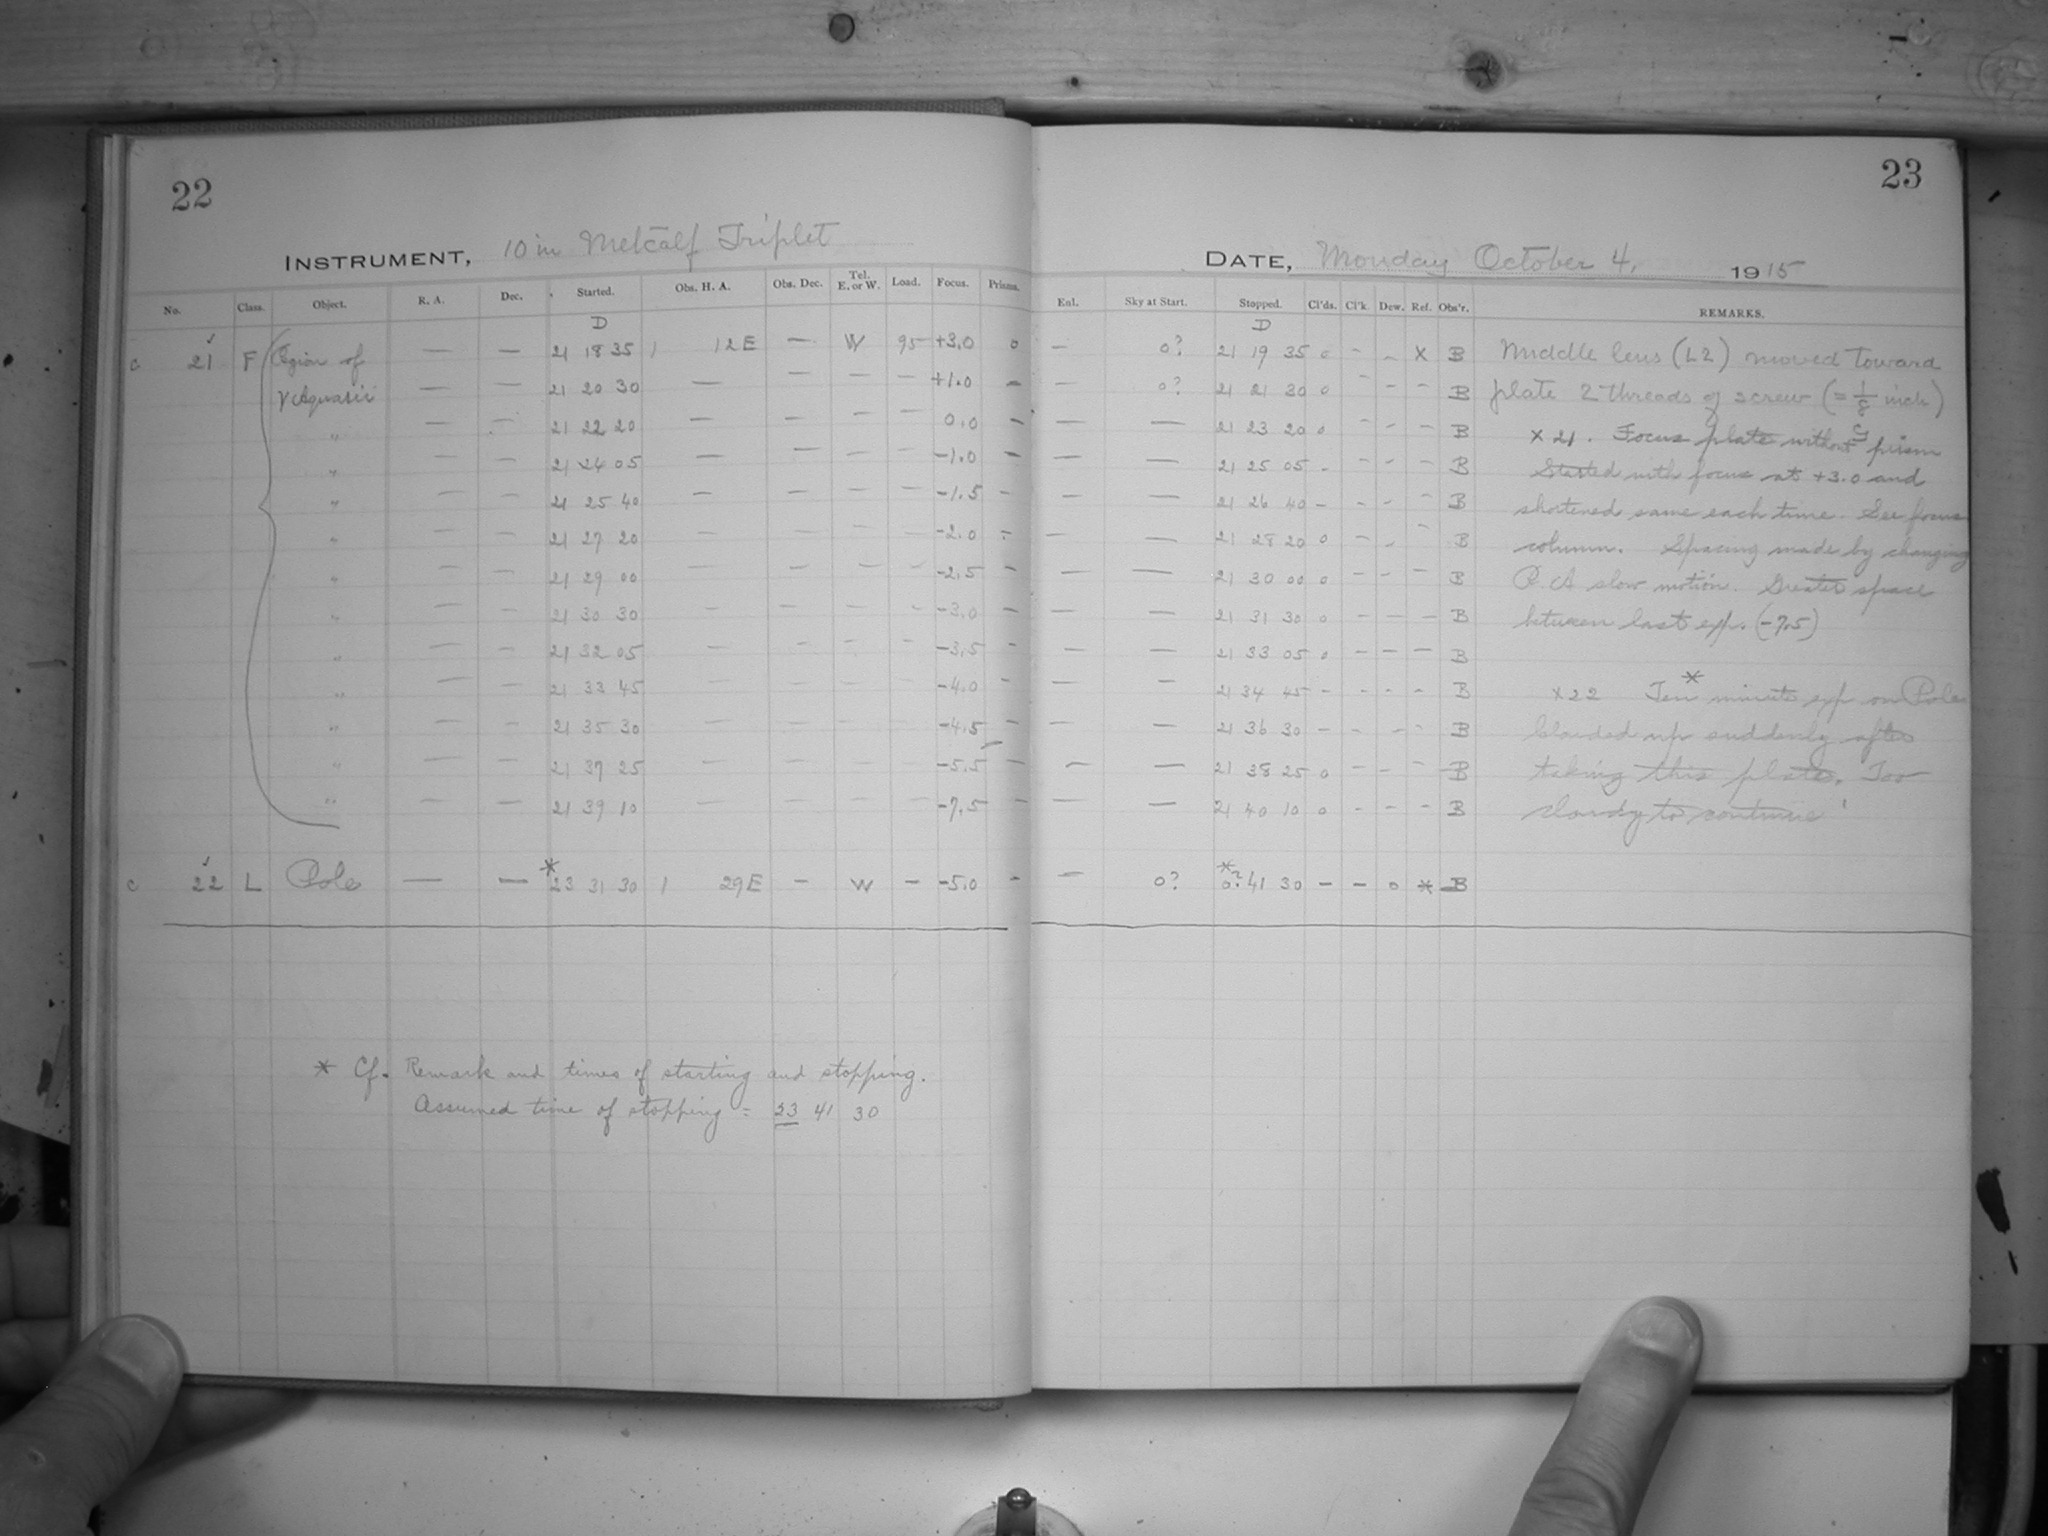 22
23
INSTRUMENT, 10 in Metcalf Triplet
DATE, Monday October 4, 1915
No. Class. Object. R. A. Dec. Started. Obs. H. A. Obs. Dec. Tel. E. or W. Load. Focus. Prisms. Enl. Sky at Start. Stopped. Cl'ds. Cl'k. Dew. Ref. Obs'r. REMARKS.
D D
c 21 F Region of — — 21 18 35 1 12 E — W 95 +3.0 0 — 0? 21 19 35 0 - - X B Middle lens (L2) moved toward
γ Aquarii — — 21 20 30 — — — — +1.0 — — 0? 21 21 30 0 - - - B plate 2 threads of screw (= 1/8 inch)
" — — 21 22 20 — — — — 0.0 — — — 21 23 20 0 - - - B X 21. Focus plate without prism
" — — 21 24 05 — — — — -1.0 — — — 21 25 05 - - - - B Started with focus at +3.0 and
" — — 21 25 40 — — — — -1.5 — — — 21 26 40 - - - - B shortened same each time. See focus
" — — 21 27 20 — — — — -2.0 — — — 21 28 20 0 - - - B column. Spacing made by changing
" — — 21 29 00 — — — — -2.5 — — — 21 30 00 0 - - - B R.A slow motion. Greater space
" — — 21 30 30 — — — — -3.0 — — — 21 31 30 0 - - - B between last exp. (-7.5)
" — — 21 32 05 — — — — -3.5 — — — 21 33 05 0 - - - B
" — — 21 33 45 — — — — -4.0 — — — 21 34 45 - - - - B X 22 Ten * minute exp on Pole
" — — 21 35 30 — — — — -4.5 — — — 21 36 30 - - - - B Clouded up suddenly after
" — — 21 37 25 — — — — -5.5 — — — 21 38 25 0 - - - B taking this plate. Too
" — — 21 39 10 — — — — -7.5 — — — 21 40 10 0 - - - B cloudy to continue
c 22 L Pole — — * 23 31 30 1 29 E — W — -5.0 — — 0? * 0? 41 30 - - 0 * B
* Cf. Remark and times of starting and stopping.
Assumed time of stopping = 23 41 30